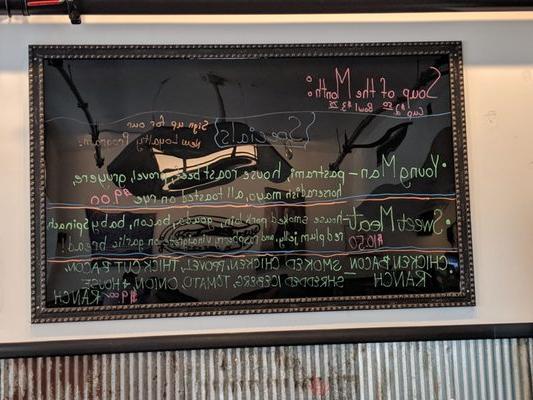 Soup of the Month:
Cup Bowl
{Specials}
Sign up for our
New Loyalty Program.
• Young Man - pastrami, house roast beef, provel, gruyere,
horseradish mayo, all toasted on rye $9.00
• Sweet Meat - house smoked pork loin, gouda, bacon, baby spinach
red plum jelly, and raspberry vinaigrette on garlic bread.
$10.50
CHICKEN BACON SMOKED CHICKEN, PROVEL, THICK CUT BACON,
RANCH - SHREDDED ICEBERG, TOMATO, ONION, + HOUSE
RANCH $9.00